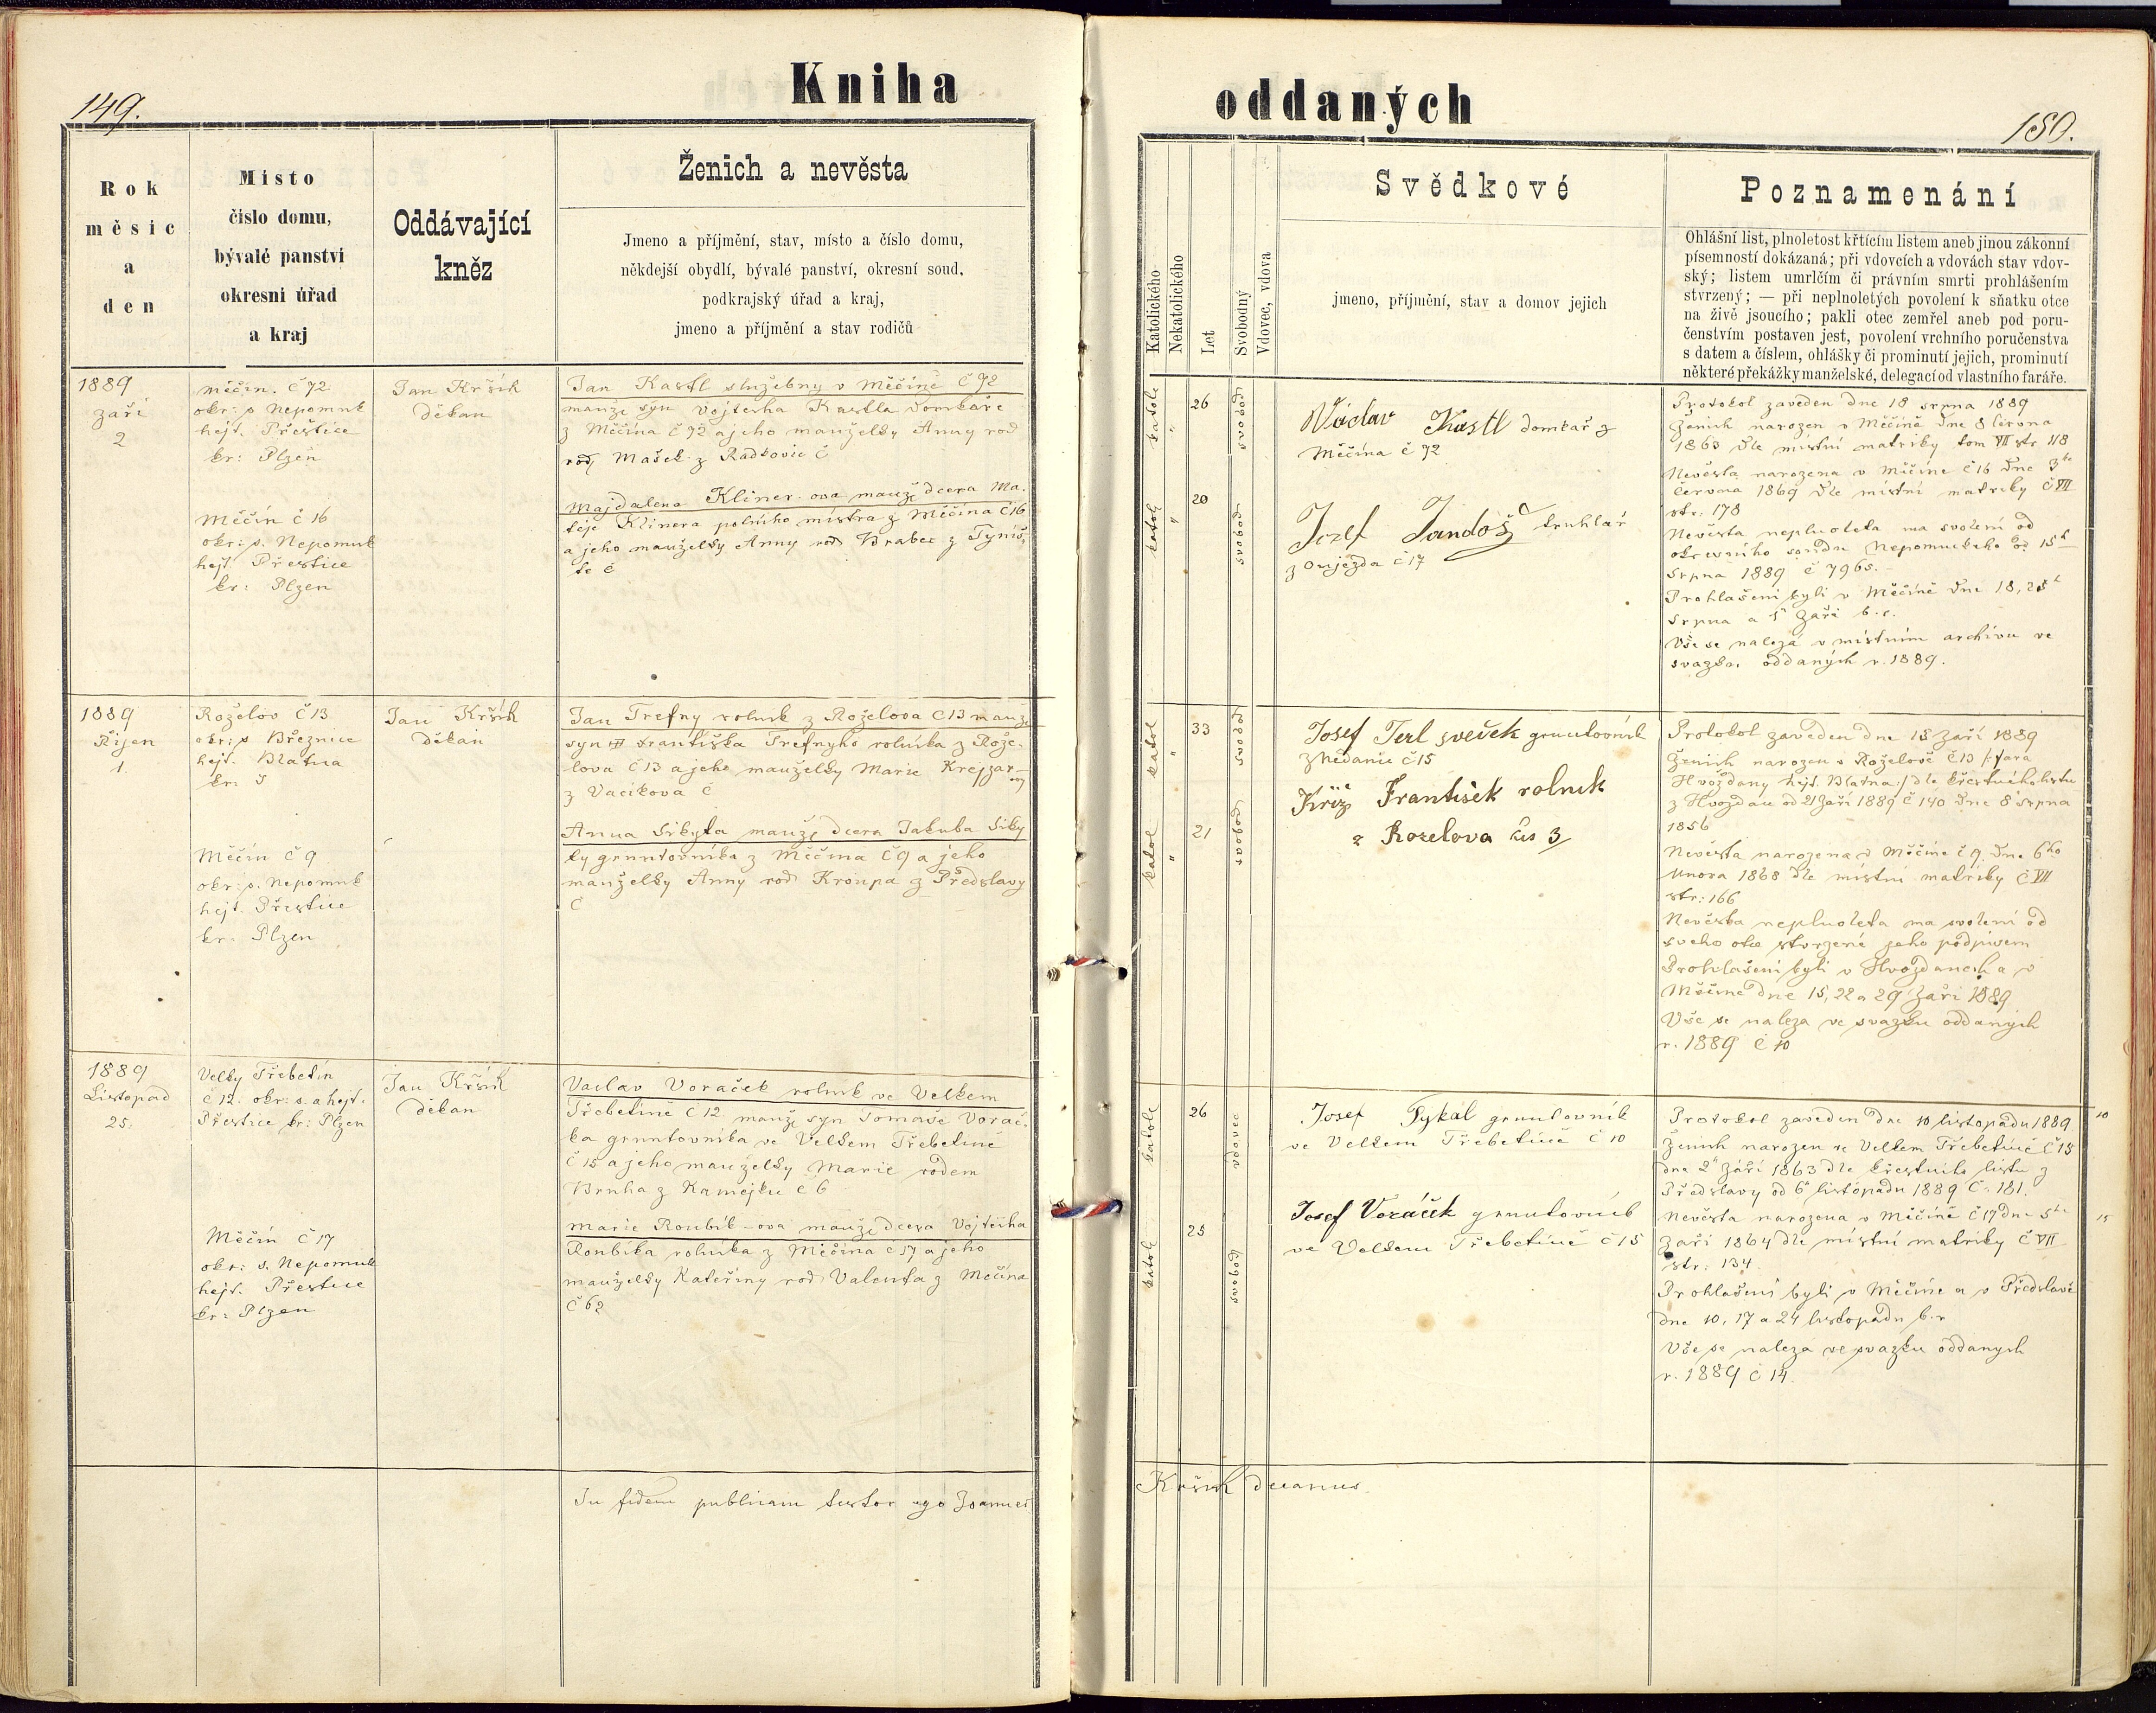 Kniha
oddaných
149.
150.
Rok
měsíc
a
den
Místo
číslo domu,
bývalé panství
okresní úřad
a kraj
Oddávající
kněz
Ženich a nevěsta
Jmeno a příjmění, stav, místo a číslo domu,
někdejší obydlí, bývalé panství, okresní soud,
podkrajský úřad a kraj,
jmeno a příjmění a stav rodičů
Katolického
Nekatolického
Let
Svobodný
Vdovec, vdova
Svědkové
jmeno, příjmění, stav a domov jejich
Poznamenání
Ohlášní list, plnoletost křtícím listem aneb jinou zákonní
písemností dokázaná; při vdovcích a vdovách stav vdov-
ský; listem umrlčím či právním smrti prohlášením
stvrzený; — při neplnoletých povolení k sňatku otce
na živě jsoucího; pakli otec zemřel aneb pod poru-
čenstvím postaven jest, povolení vrchního poručenstva
s datem a číslem, ohlášky či prominutí jejich, prominutí
některé překážky manželské, delegací od vlastního faráře.
1889
září
2
Měčín. č 72
okr: s Nepomuk
hejt. Přeštice
kr: Plzeň
Měčín č 16
okr: s. Nepomuk
hejt. Přeštice
kr: Plzen
Jan Kršík
děkan
Jan Kastl služebny v Měčíně č 72
manž syn Vojtěcha Kastla domkáře
z Měčína č 72 a jeho manželky Anny rod
rod Mašek z Radkovic č
Majdalena Kliner-ova manž dcera Ma-
těje Klinera polního mistra z Měčína č 16
a jeho manželky Anny rod Brabec z Týniš-
tě č
katol
"
26
svobod
katol
"
20
svobod
Václav Kastl domkař z
Měčína č 72
Jozef Jandoš truhlář
z Oujezda č 17
Protokol zaveden dne 18 srpna 1889
Ženich narozen v Měčíně dne 8 června
1863 dle místní matriky tom VII str 118
Nevěsta narozena v Měčíne č 16 dne 3ho
června 1869 dle místní matriky č VII
str: 178
Nevěsta neplnoleta ma svolení od
okresního soudu Nepomuckeho od 15h
srpna 1889 č 7965.
Prohlašeni byli v Měčíně dne 18, 25
srpna a 1 září b.r.
Vše se nalezá v místním archivu ve
svazku oddaných r. 1889.
1889
Říjen
1.
Roželov č 13
okr: s Březnice
hejt. Blatna
kr:
Měčín č 9
okr: s. Nepomuk
hejt. Přeštice
kr. Plzen
Jan Kršík
děkan
Jan Trefny rolník z Roželova č 13 manž
syn Františka Trefnyho rolníka z Rože-
lova č 13 a jeho manželky Marie Krejzar
z Vacíkova č
Anna Sikyta manž dcera Jakuba Siky
ty gruntovníka z Měčína č 9 a jeho
manželky Anny rod Kroupa z Předslavy
č
katol
"
33
svobod
katol
"
21
svobod
Josef Terl gruntovník
z Nedanic č 15
Kříž František rolnik
z Rozelova čís 3
Protokol zaveden dne 18 září 1889
Ženich narozen v Roželově č 13 /: fara
Hvoždany hejt. Blatna :/ dle křestného listu
z Hvoždan od 21 září 1889 č 140 dne 8 srpna
1856
Nevěsta narozena v Měčíne č 9. dne 6ho
unora 1868 dle místni matriky č VII
str: 166
Nevěsta neplnoleta ma svolení od
sveho otce stvrzené jeho podpisem
Prohlašeni byli v Hvoždanech a v
Měčíne dne 15, 22 a 29 září 1889
Vše se naleza ve svazku oddanych
r. 1889 č 10
1889
Listopad
25.
Velky Třebetín
č 12. okr: s. a hejt.
Přeštice kr: Plzen
Měčín č 17
okr: s. Nepomuk
hejt. Přeštice
kr: Plzen
Jan Kršík
děkan
Vaclav Voraček rolník ve Velkem
Třebetíně č 12 manž syn Tomaše Vorač-
ka gruntovníka ve Velkem Třebetíně
č 15 a jeho manželky Marie rodem
Bruha z Kamejku č 6
Marie Roubík-ova manž dcera Vojtěcha
Roubíka rolníka z Měčína č 17 a jeho
manželky Kateřiny rod Valenta z Měčína
č 62
katol
26
vdovec
katol
25
svobod
Josef Tykal gruntovník
ve Velkem Třebetíně č 10
Josef Voráček gruntovník
ve Velkem Třebetíně č 15
Protokol zaveden dne 10 listopadu 1889
Ženich narozen ve Velkem Třebetíně č 15
dne 2 září 1863 dle křestního listu z
Předslavy od 6 listopadu 1889 č. 181.
Nevěsta narozena v Měčíně č 17 dne 5ho
září 1864 dle místní matriky č VII
str: 134
Prohlašeni byli v Měčíne a v Předslavě
dne 10, 17 a 24 listopadu b.r
Vše se naleza ve svazku oddanych
r. 1889 č 14.
10
15
In fidem publicam testor ego Joannes
Kršík decanus.